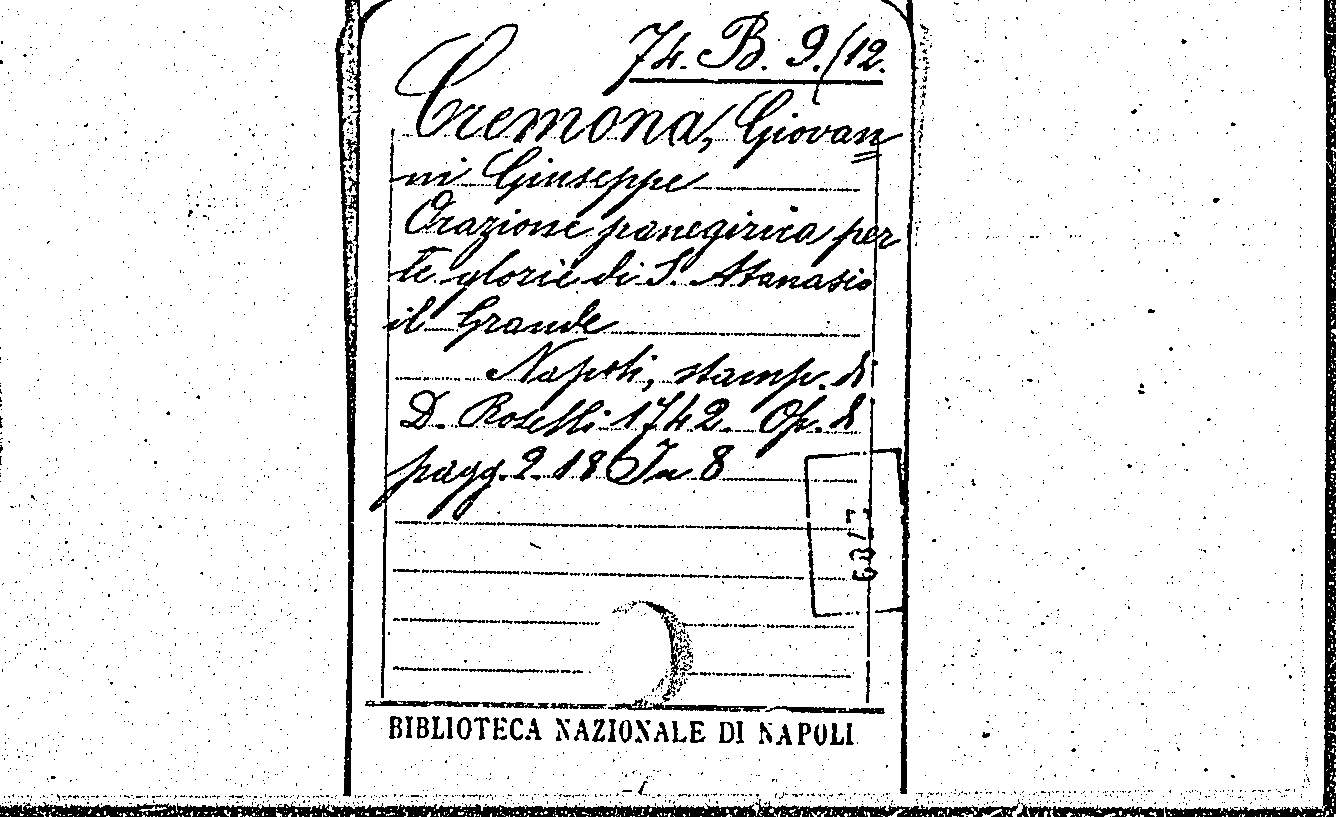 74. B. 9./12.
Cremona, Giovan
ni Giuseppe
Orazione panegirica per
le glorie di S. Atanasio
il Grande
Napoli, stamp. di
D. Roselli 1742. Op. di
pagg. 2. 18 In 8
68/7
BIBLIOTECA NAZIONALE DI NAPOLI